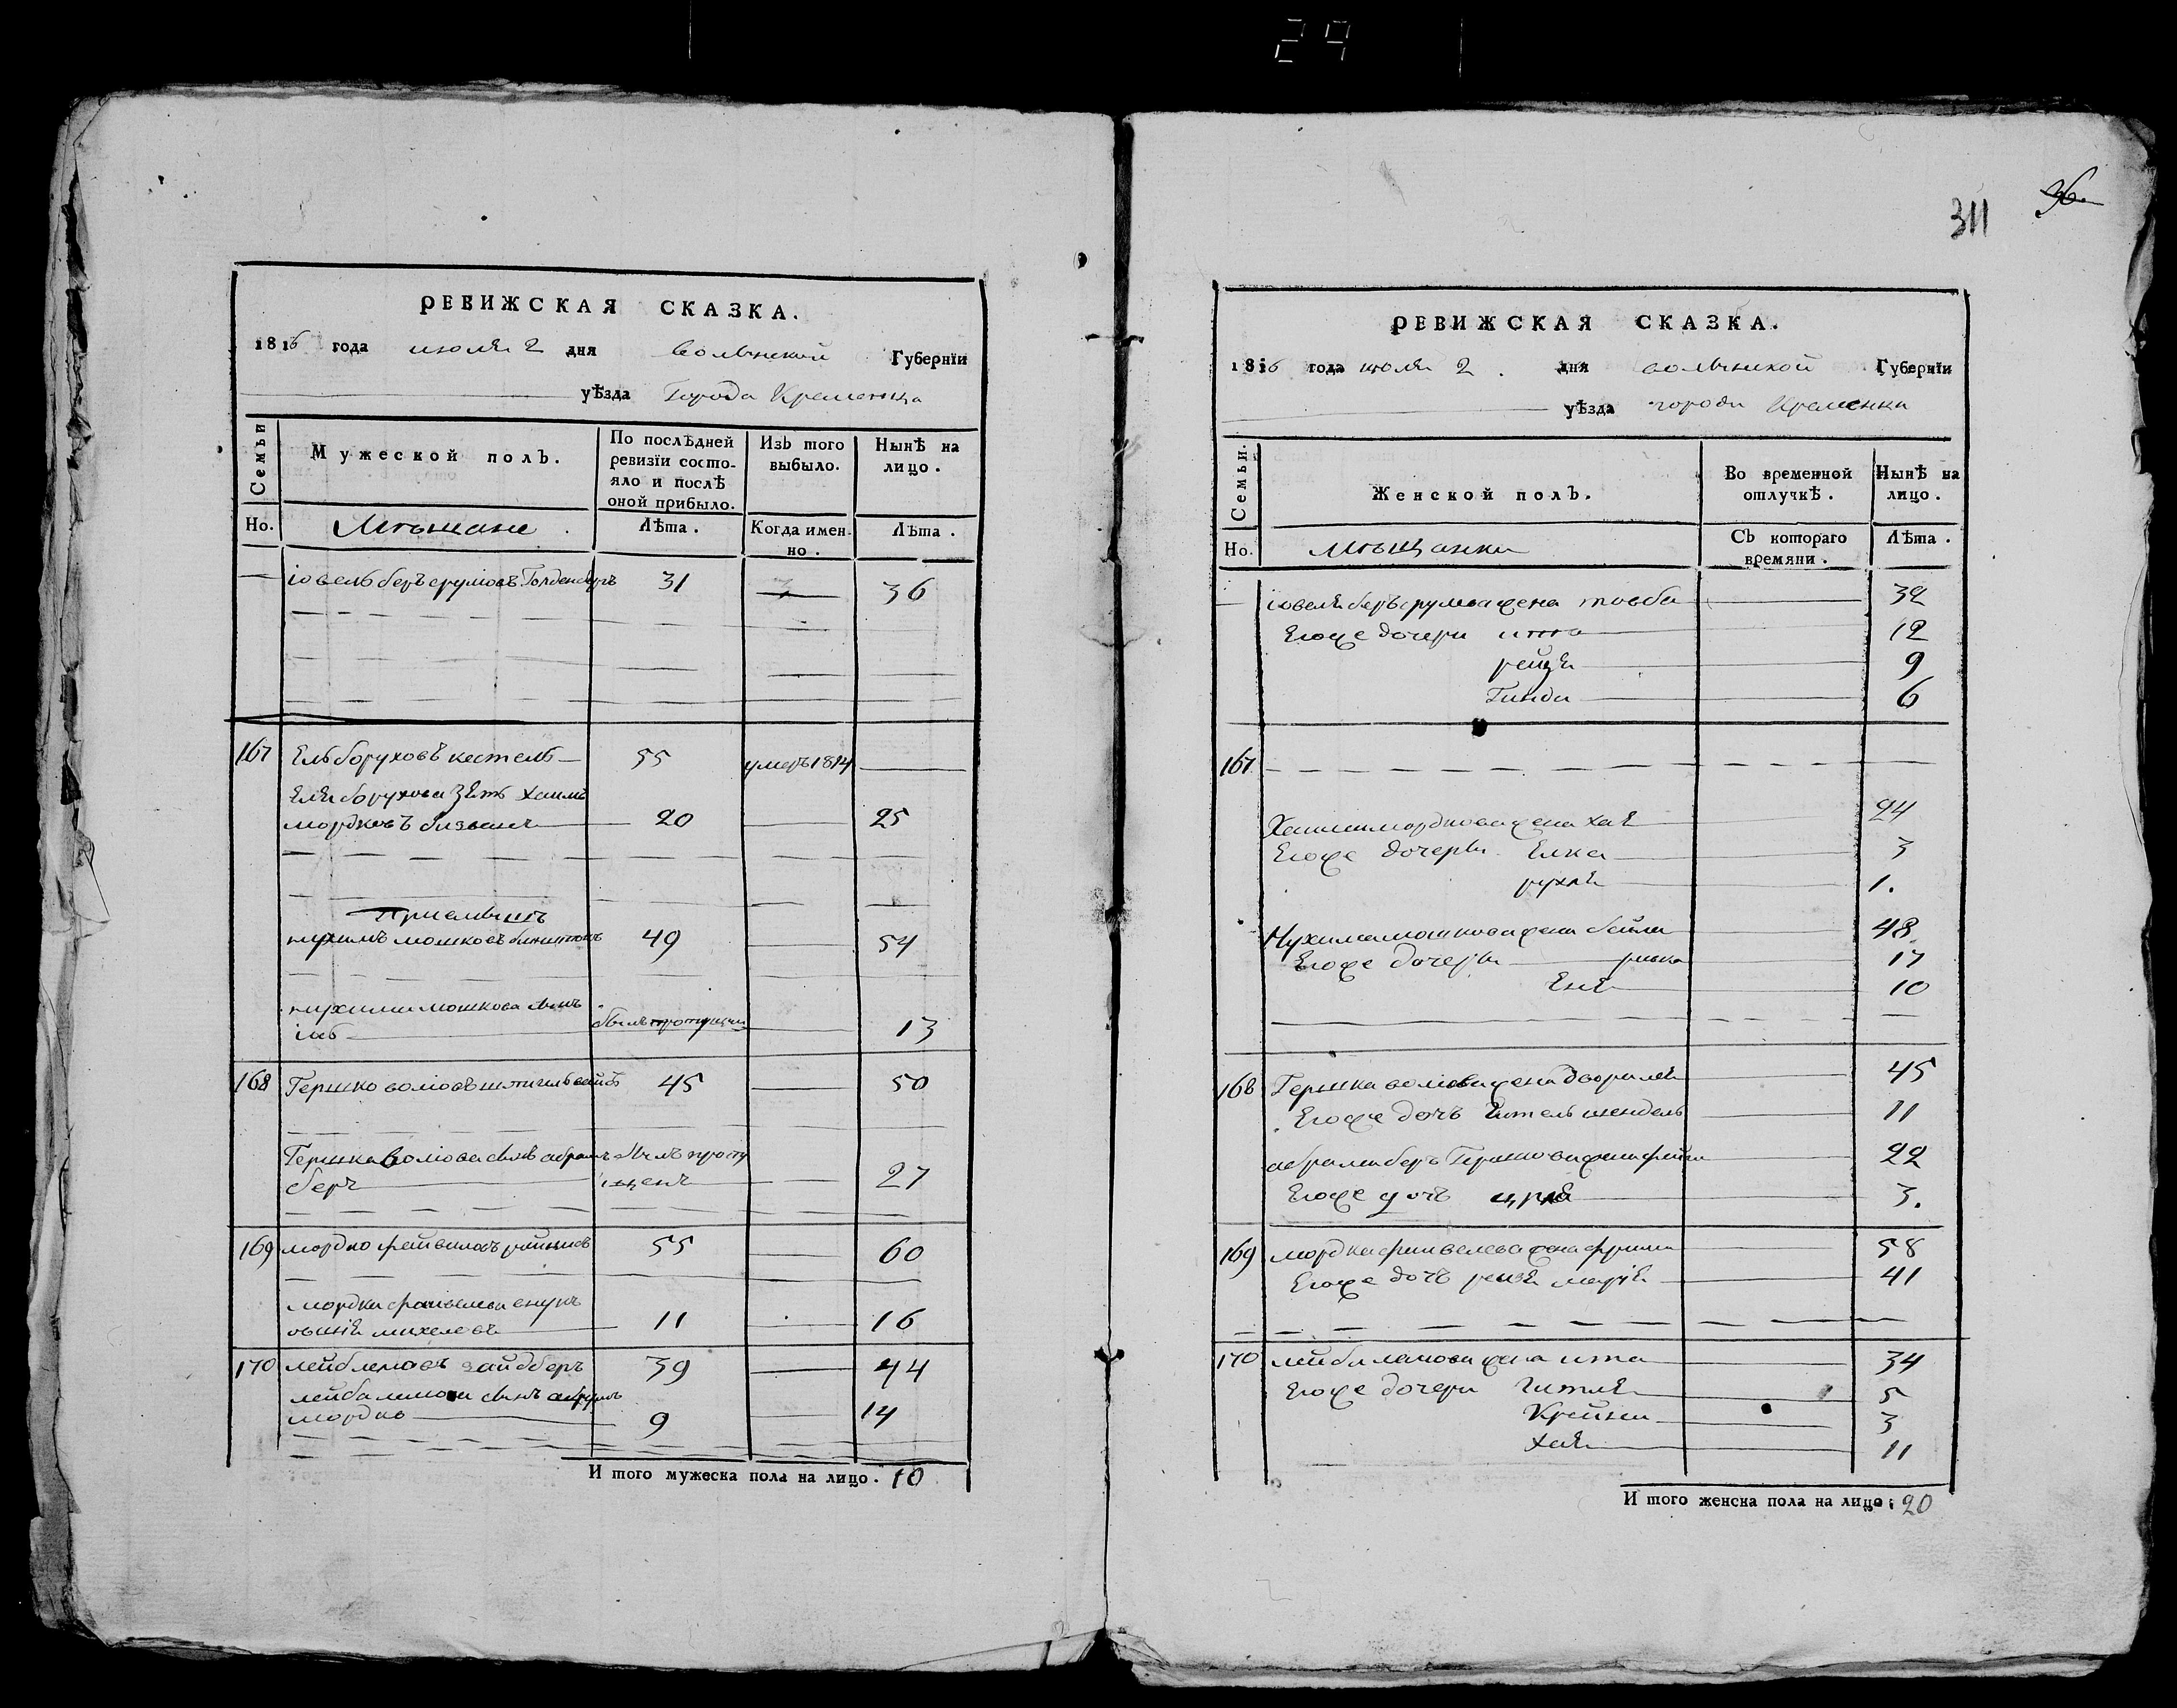 29
311
96.
РЕВИЖСКАЯ СКАЗКА.
1816 года июля 2 дня Волынской Губернїи
уѣзда Города Кременца
Семьи
Мужеской полъ.
По послѣдней ревизїи состо-
яло и послѣ
оной прибыло.
Изъ того выбыло.
Нынѣ на лицо.
Но.
Мѣщане.
Лѣта.
Когда имен-
но.
Лѣта.
іовель беръ срулiовъ Голденбергъ 31 36
167 Ель боруховъ кестель 55 умеръ 1814
Еля борухова зять хаимъ
мордковъ 20 25
Приемышъ
нухимъ мошковъ 49 54
нухима мошкова сынъ
былъ пропущен 13
168 Гершко волiовъ 45 50
Гершка волiова сынъ абрамъ былъ пропу
беръ щенъ 27
169 мордко фейвиловъ 55 60
мордка фейвелева внукъ
овшiя михелевъ 11 16
170 лейб лемовъ зайдберъ 39 44
лейба лемова сынъ
мордко 9 14
И того мужеска пола на лицо. 10
РЕВИЖСКАЯ СКАЗКА.
1816 года июля 2. дня волынской Губернїи
уѣзда города Кременца
Семьи.
Женской полъ.
Во временной
отлучкѣ.
Нынѣ на
лицо.
Но.
мѣщанки
Съ котораго
времяни.
Лѣта.
іовеля беръ срулева жена товба 32
Егоже дочери итта 12
рейзя 9
Гинда 6
167
Хаима мордкова жена хая 24
Егоже дочери Елка 3
рухля 1.
Нухима мошкова жена бейла 48
Егоже дочери ривка 17
Еня 10
168 Гершка волiова жена двориля 45
Егоже дочь Гитель шендель 11
абрама беръ Гершкова жена фейга 22
Егоже дочь 3.
169 мордка фейвелева жена фрима 58
Егоже дочь рейзя марiя 41
170 лейба лемова жена ита 34
Егоже дочери Гитля 5
Крейна 3
хая 11
И того женска пола на лицо: 20